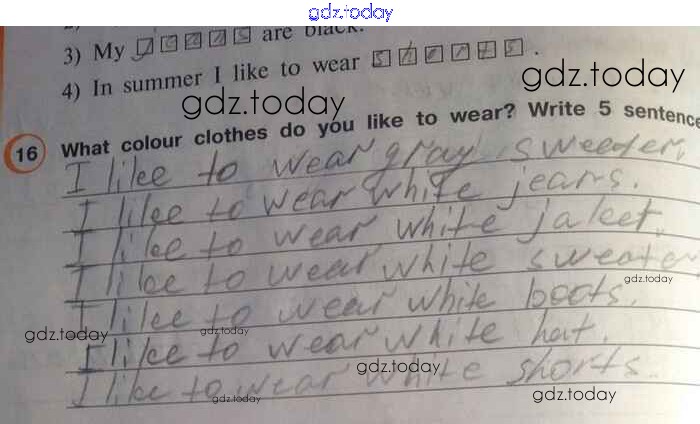 gdz.today
3) My jeans are black.
4) In summer I like to wear shorts.
gdz.today
gdz.today
16 What colour clothes do you like to wear? Write 5 sentence
I like to wear gray sweeter.
I like to wear white jears.
I like to wear white jaket.
I like to wear white sweater
gdz.today
I like to wear white boots.
gdz.today gdz.today
I like to wear white hat.
gdz.today
I like to wear white shorts.
gdz.today gdz.today